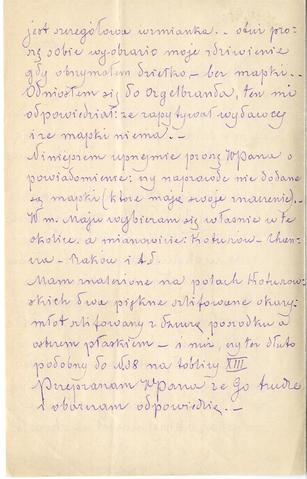 jest szczegółowa wzmianka. . otóż pro-
szę sobie wyobrazić moje zdziwienie
gdy otrzymałem dziełko – bez mapki. .
Odniosłem się do Orgelbranda, ten mi
odpowiedział: że zapytywał wydawcę
i że mapki niema. –
Niniejszem uprzejmie proszę WPana o
powiadomienie: czy naprawdę nie dodane
są mapki (które mają swoje znaczenie). –
W m. Maju wybieram się właśnie w te
okolice. a mianowicie: Koturów –
– Raków i t.d.
Mam znalezione na polach Koturow-
skich dwa piękne szlifowane okazy –
młot szlifowany z dziurą pośrodku a
ostrzem płaskiem – i nuż, czy też dłuto
podobny do №38 na tablicy XIII
Przepraszam WPana że Go trudzę
i obarczam odpowiedzią. –